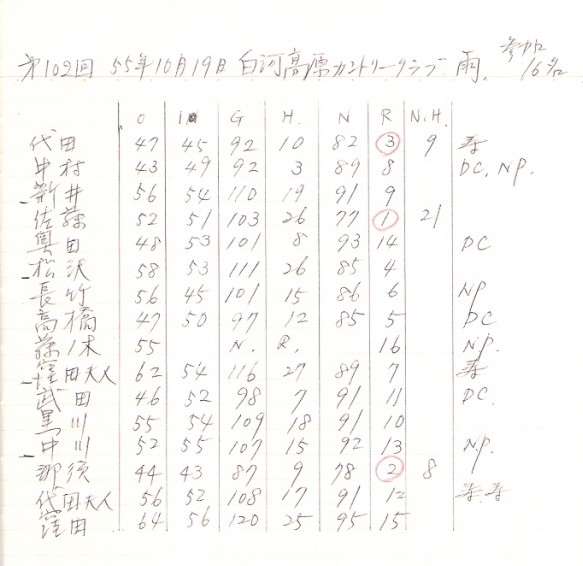 第102回 55年10月19日 白河高原カントリークラブ 雨、 参加16名
O i G H. N R N.H.
代田 47 45 92 10 82 3 9 寿
中村 43 49 92 3 89 8 DC, NP.
新井 56 54 110 19 91 9
佐藤 52 51 103 26 77 1 21
奥田 48 53 101 8 93 14 DC
松沢 58 53 111 26 85 4
長竹 56 45 101 15 86 6 NP
高橋 47 50 97 12 85 5 DC
藤乃木 55 N. R. 16 NP.
窪田夫人 62 54 116 27 89 7 寿
武田 46 52 98 7 91 11 DC.
黒川 55 54 109 18 91 10
中川 52 55 107 15 92 13 NP.
那須 44 43 87 9 78 2 8
代田夫人 56 52 108 17 91 12 寿寿
窪田 64 56 120 25 95 15